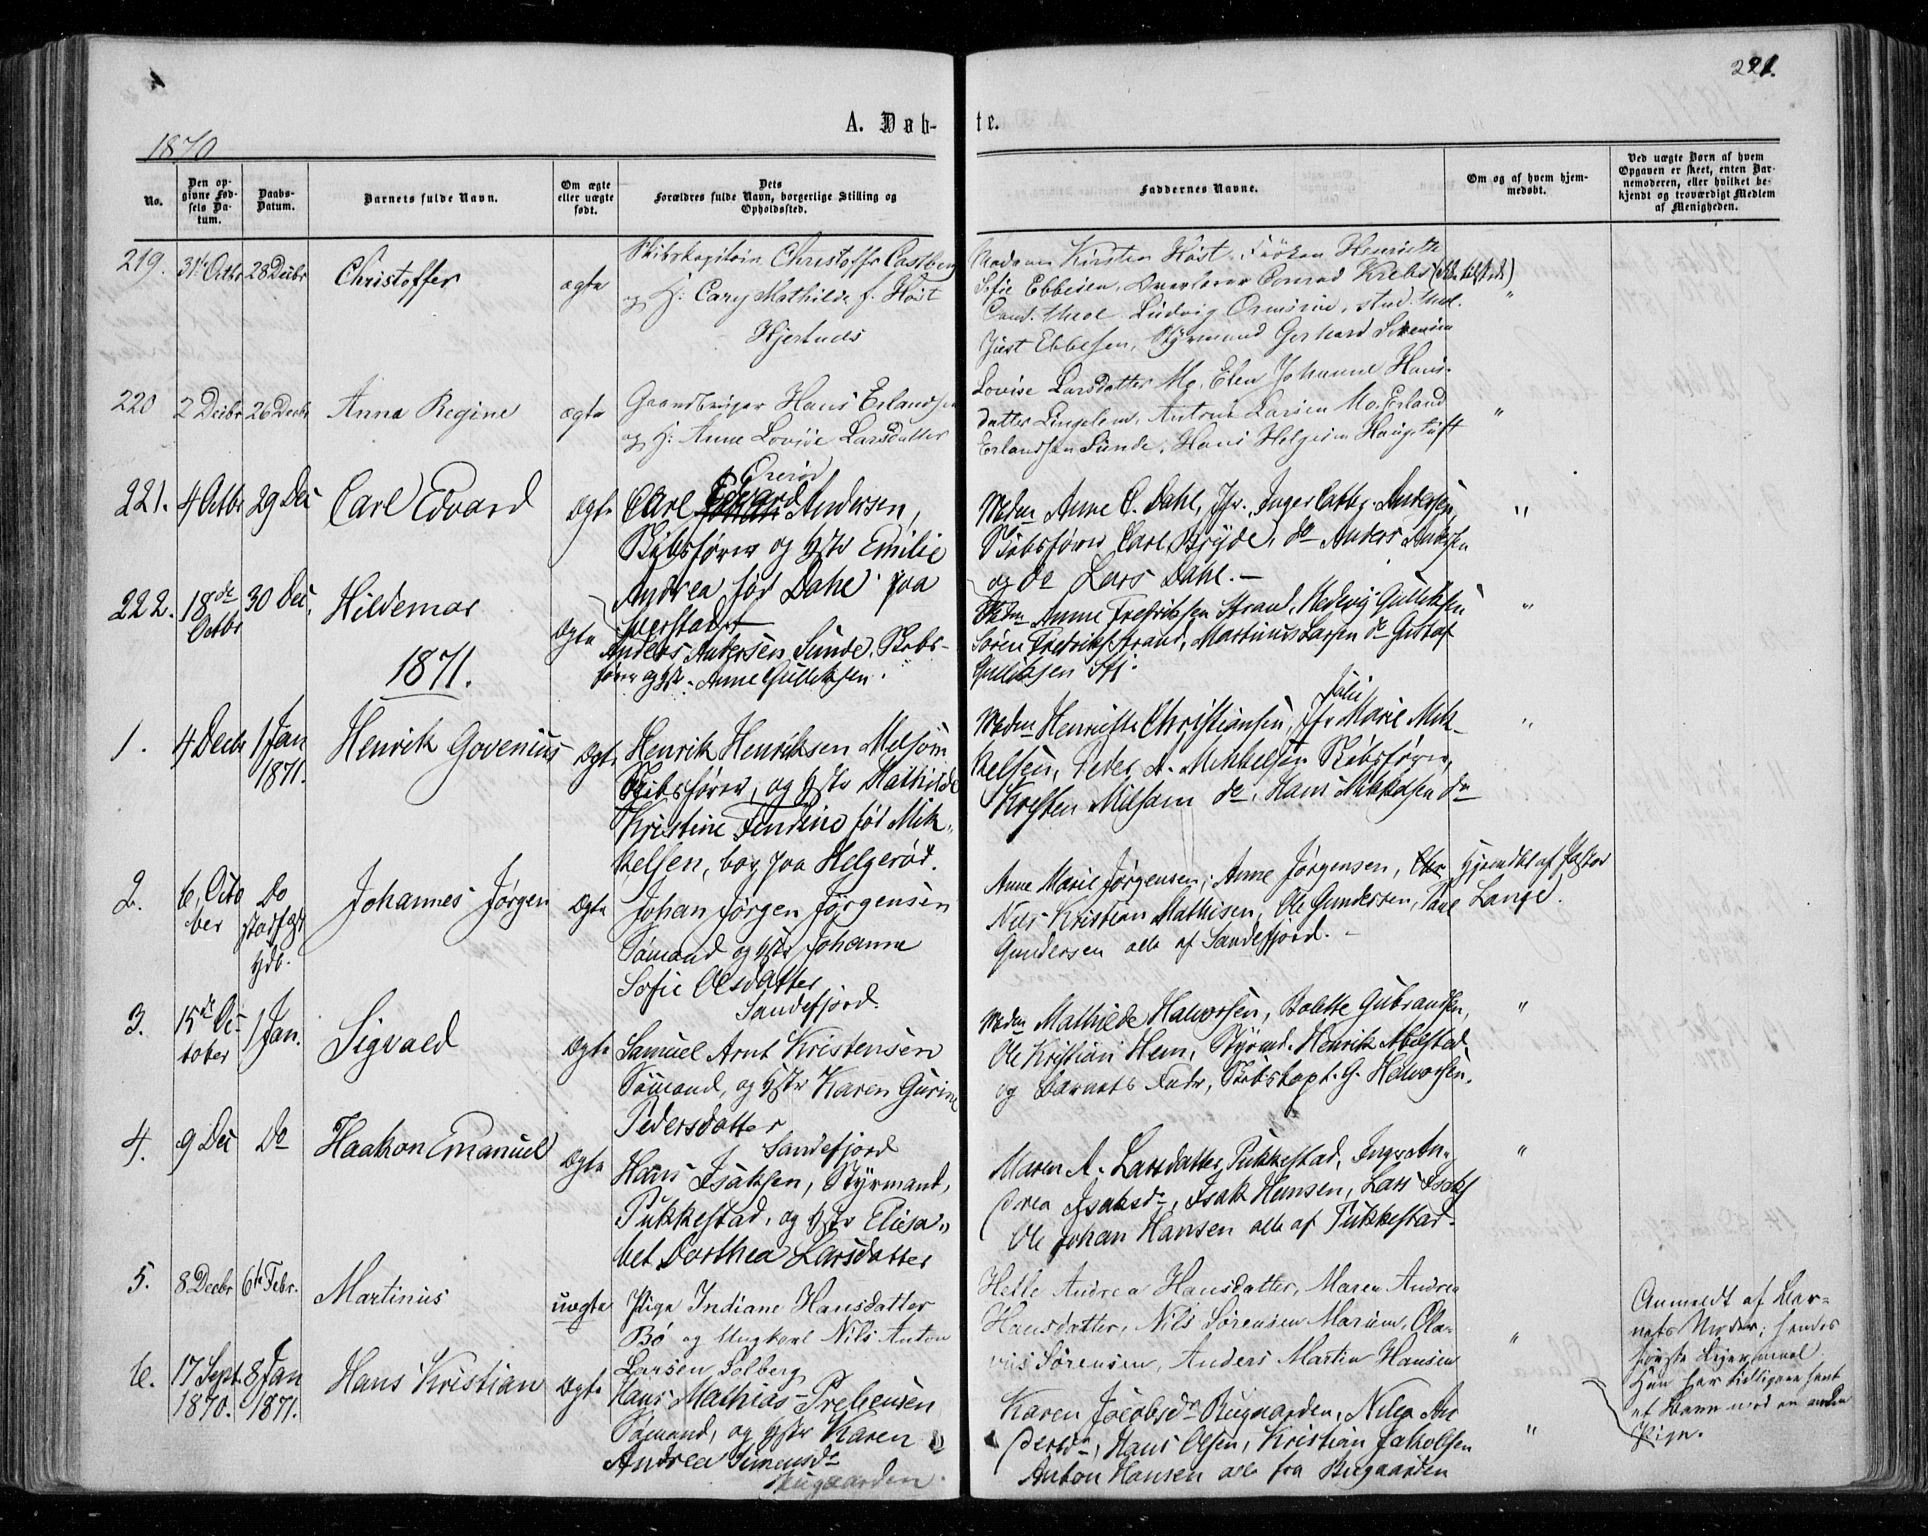 221.
A. Døb-
te.
1870
No.
Den op-
givne Fød-
sels Da-
tum.
Daabs-
Datum.
Barnets fulde Navn.
Om ægte
eller uægte
født.
Dets
Forældres fulde Navn, borgerlige Stilling og
Opholdssted.
Faddernes Navne.
Om og af hvem hjem-
medøbt.
Ved uægte Børn af hvem
Opgaven er skeet, enten Bar-
nemoderen, eller hvilket be-
kjendt og troværdigt Medlem
af Menigheden.
219. 31te Octbr 28 Decbr Christoffer ægte
Skibskapitain Christoffer Castberg
og H: Cary Mathilde f. Høst
Hjertnes
Madame Kirsten Høst, Frøken Henriette
Sofie Ebbesen, Overlærer Conrad Krebs
Cand. theol. Ludvig stud. med.
Just Ebbesen, Styrmand Gerhard Sørensen
"
220 2 Decbr 26 Decbr Anna Regine ægte
Gaardbruger Hans Erlandsen
og H: Anne Lovise Larsdatter
Lovise Larsdatter Mo, Elen Johanne Hans-
datter Lingelem, Anton Larsen Mo, Erland
Erlandsen Sunde, Hans Helgesen Haugstuft
"
221. 4 Octbr 29 Dec Carl Edvard Ægte
Carl Edvard Andersen,
Skibsfører og Hstr Emilie
Andrea fød Dahl paa
Madm Anne C. Dahl, Jfr. Inger Cathr. Andersen,
Skibsfører Carl Bryde, do Anders Andersen
og do Lars Dahl. –
"
222. 18de Octbr 30 Dec. Hildemar Ægte
Anders Andersen Sunde, Skibs-
fører og Hst. Anne Gulliksen.
Madm Anne Fredriksen Strand, Hedevig Gulliksen
Søren Fredriks Strand, Martinus Larsen do Gustaf
Gulliksen
"
1871.
1. 4 Decbr 1 Jan 1871. Henrik Govenius Ægte
Henrik Henriksen Melsom
Skibsfører, og Hstr Mathilde
Kristine Fendine fød Mik-
kelsen, boy paa Helgerød.
Julie
Madm Henriette Christiansen, Jfr Marie Mik-
kelsen, Peder A. Mikkelsen Skibsfører,
Kristen Milsom do, Hans Mikkelsen do
"
2. 6. Octo
ber Do
stadfæst
Hdb. Johannes Jørgen Ægte
Johan Jørgen Jørgensen
Sømand og Hstr Johanne
Sofie Olesdatter
Sandefjord.
Anne Marie Jørgensen, Anne Jørgensen,
Nils Kristian Mathisen, Ole Gundersen, Paul
Gundersen alle af Sandefjord. –
Hjemdbt af Pastor
Lange.
3. 15de Oc-
tober 1 Jan. Sigvald Ægte
Samuel Arnt Kristensen
Sømand, og Hstr Karen Gurine
Pedersdatter
Sandefjord
Madm Mathilde Halvorsen, Bolette Gubrandsen,
Ole Kristian Hem, Styrmd. Henrik Melstad
og Barnets Fader, Skibskapt. G. Halvorsen.
"
4. 9 Dec Do Haakon Emanuel Ægte
Hans Isaksen, Styrmand,
Pukkestad, og Hstr Elisa-
bet Dorthea Larsdatter
Maren A. Larsdatter Pukkestad, Inger An-
drea Isaksdr, Isak Hansen, Lars Isaks
Ole Johan Hansen alle af Pukkestad.
"
5. 8 Decbr 6te Febr. Martinus uægte
Pige Indiane Hansdatter
Bø og Ungkarl Nils Anton
Larsen Solberg
Helle Andrea Hansdatter, Maren Andrea
Hansdatter, Nils Sørensen Marum, Ola-
vus Sørensen, Anders Martin Hansen
"
Anmeldt af Bar-
nets Moder; hendes
første Leiermaal
Han har tidligere havt
et Barn med en anden
Pige.
6. 17 Sept. 1870. 8 Jan 1871. Hans Kristian Ægte
Hans Mathias Prebensen
Sømand, og Hstr Karen
Andrea Simensdr
Bugaarden.
Karen Jacobsdr Bugaarden, Nilea An-
dersdr, Hans Olsen, Kristian Jakobsen
Anton Hansen alle fra Bugaarden
"